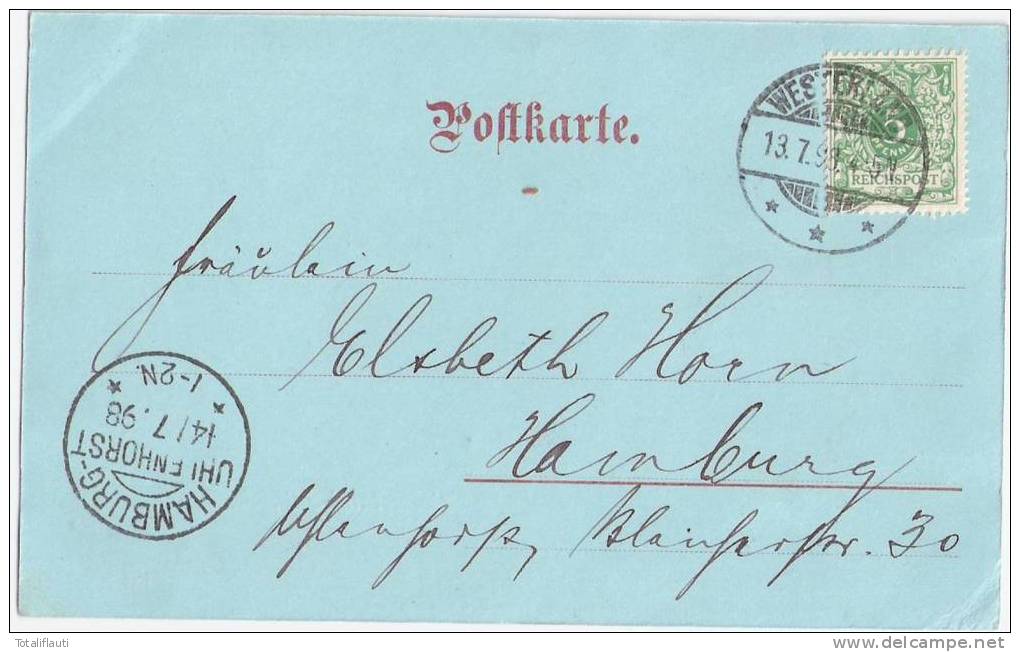 Postkarte.
WESTERLAND
13.7.98. 4-5N
5
PFENNIG
REICHSPOST
Fräulein
Elsbeth Horn
Hamburg
Uhlenhorst, 30
HAMBURG-
UHLENHORST
14/7.98
1-2N.
Totaliflauti
www.delcampe.net